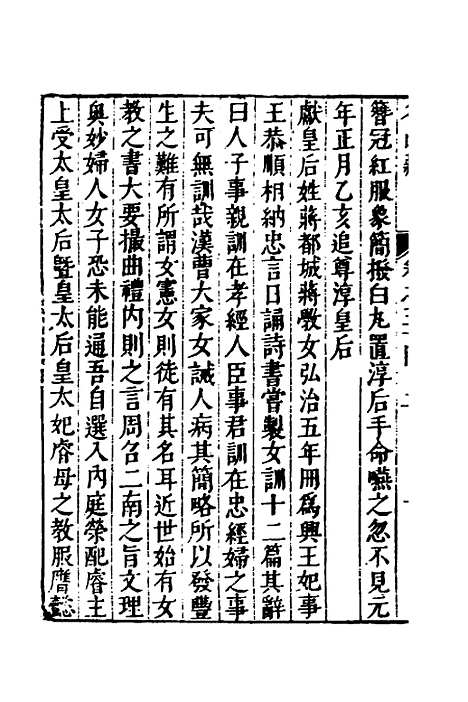 簪冠紅服象簡搬白丸置淳后手命嚥之忽不見元
年正月乙亥追尊淳皇后
獻皇后姓蔣都城蔣斆女弘治五年冊爲興王妃事
王恭順相納忠言日誦詩書嘗製女訓十二篇其辭
曰人子事親訓在孝經人臣事君訓在忠經婦之事
夫可無訓哉漢曹大家女誡人病其簡略所以發豐
生之難有所謂女憲女則徒有其名耳近世始有女
教之書大要撮曲禮內則之言周召二南之旨文理
奥妙婦人女子恐未能通吾自選入內庭榮配睿主
上受太皇太后曁皇太后皇太妃睿母之教服膺懿